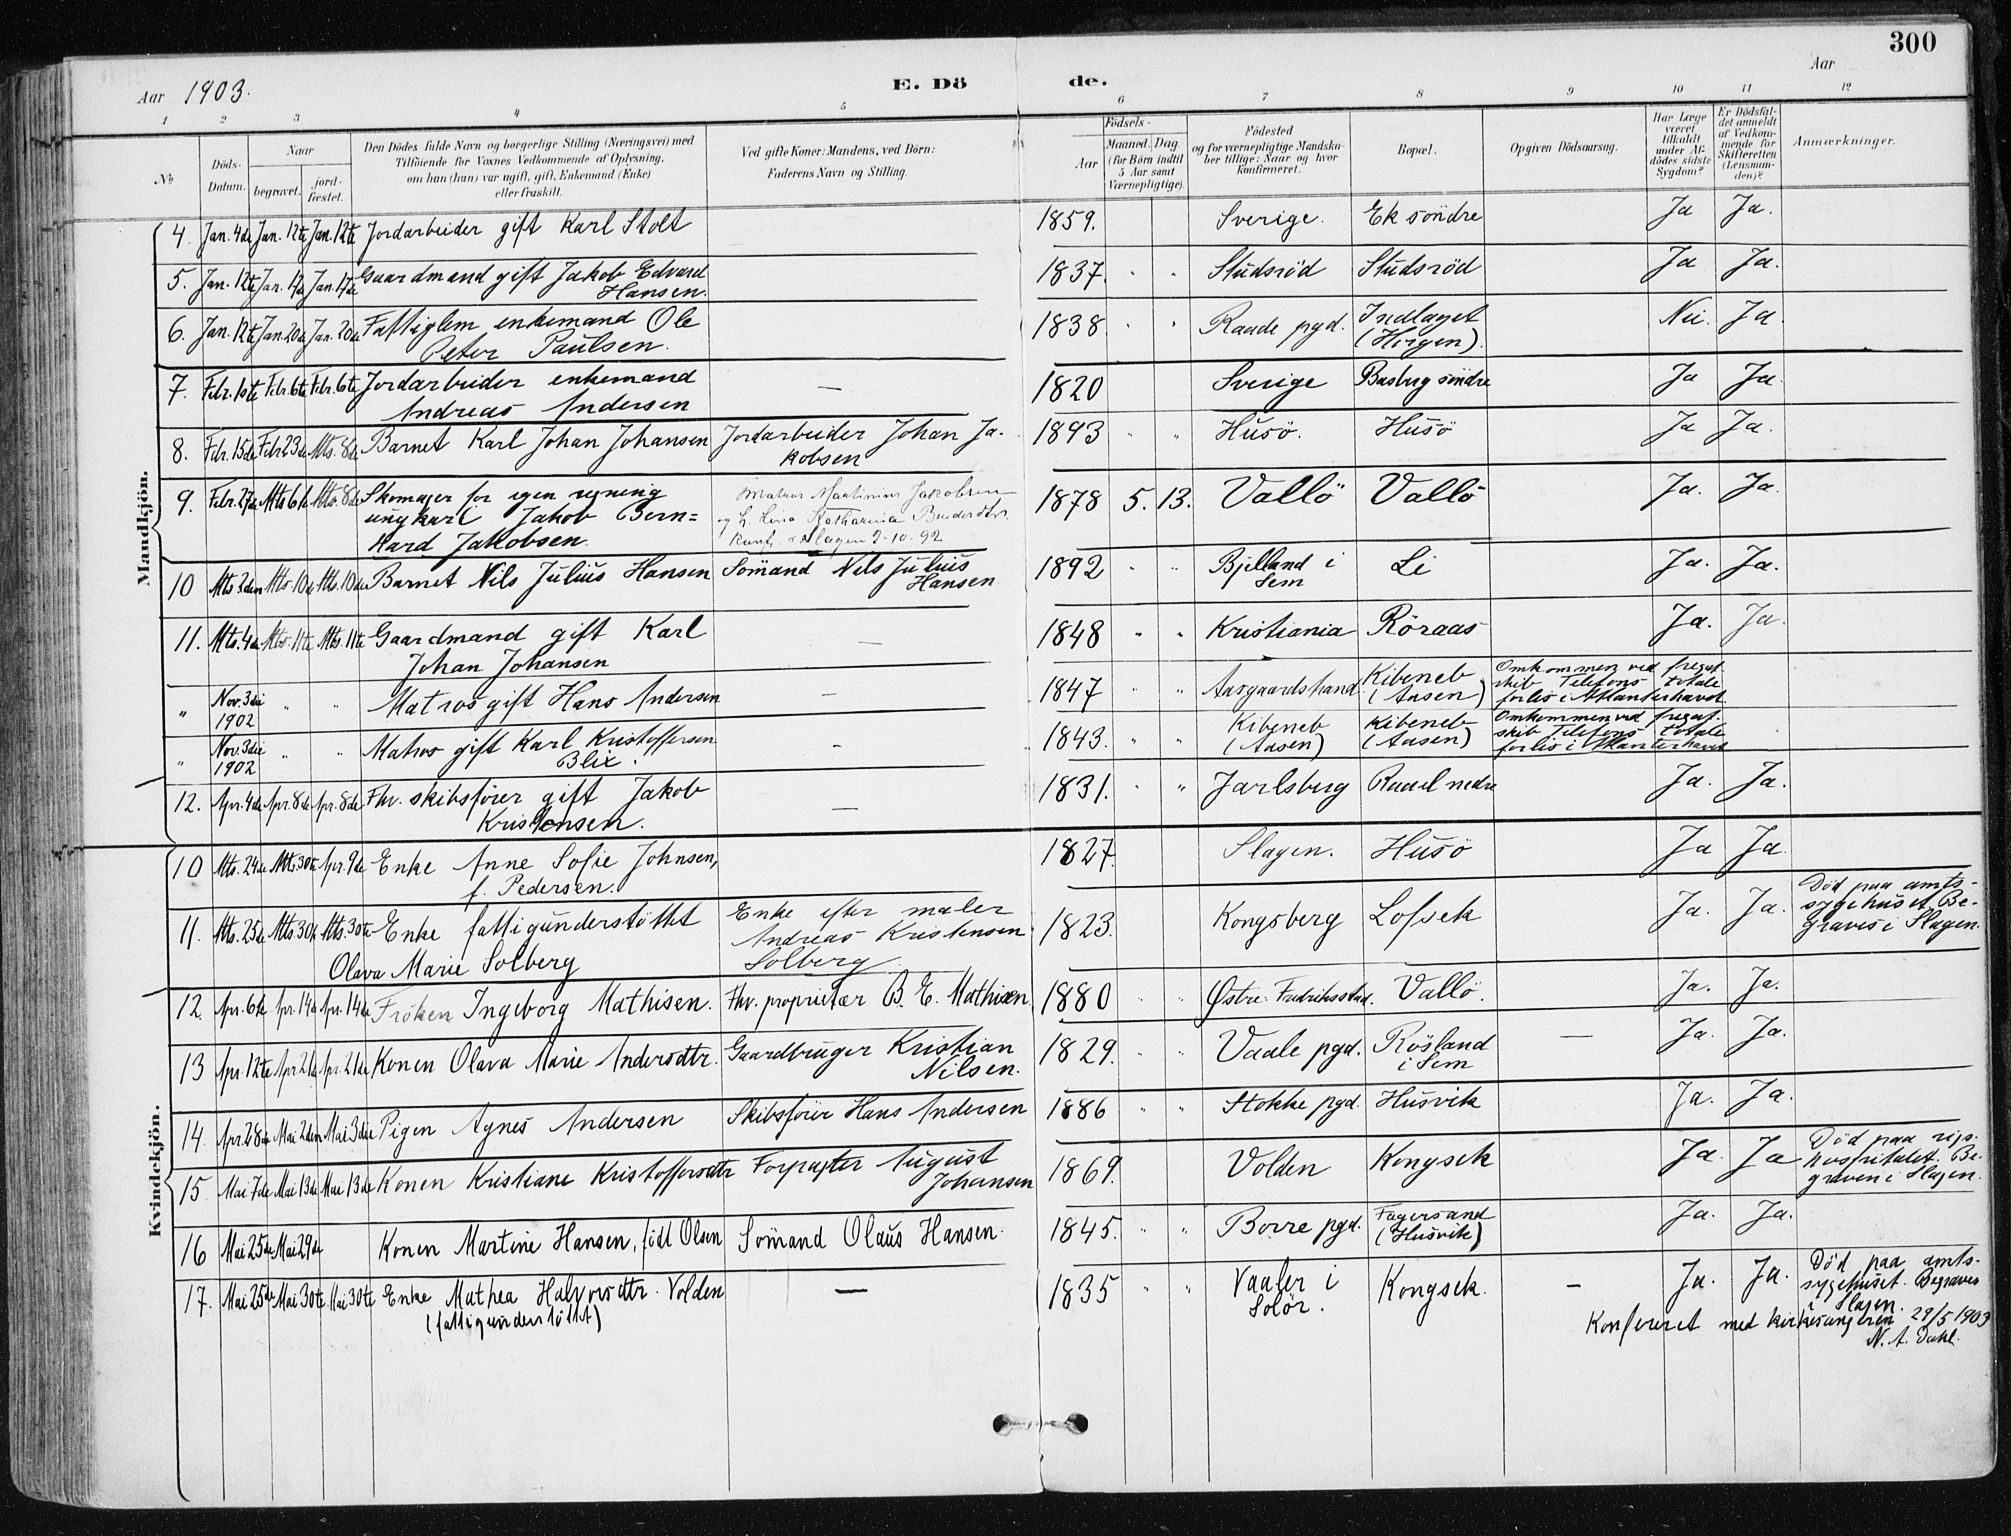 300
Aar 1903.
E. Dö de.
Aar
1 2 3 4 5 6 7 8 9 10 11 12
№
Döds-Datum.
Naar begravet. jord-fæstet.
Den Dödes fulde Navn og borgerlige Stilling (Næringsvei) med Tilföiende for Voxnes Vedkommende af Oplysning, om han (hun) var ugift, gift, Enkemand (Enke) eller fraskilt.
Ved gifte Koner: Mandens, ved Börn: Faderens Navn og Stilling.
Födsels-
Aar Maaned. Dag (for Börn indtil 5 Aar samt Værnepligtige).
Födested og for værnepligtige Mandskaber tillige: Naar og hvor konfirmeret.
Bopæl.
Opgiven Dödsaarsag.
Har Læge været tilkaldt under Afdödes sidste Sygdom?
Er Dödsfaldet anmeldt af Vedkommende for Skifteretten (Lensmanden)?
Anmærkninger.
Mandkjön.
4. Jan. 4de Jan. 12te Jan. 12te Jordarbeider gift Karl Stolt 1859. Sverige. Ek söndre Ja Ja.
5. Jan. 12te Jan. 17de Jan. 17de Gaardmand gift Jakob Edvard Hansen. 1837. " " Studsröd Studsröd Ja Ja.
6. Jan. 12te Jan. 20de Jan. 20de Fattiglem enkemand Ole Peter Paulsen. 1838 " " Raade pgd. Indlaget Nei. Ja.
7. Febr. 6te Febr. 6te Jordarbeider enkemand Andreas Andersen — 1820 Sverige Basberg söndre Ja Ja.
8. Febr. 15de Febr. 23de Mts. 8de Barnet Karl Johan Johansen Jordarbeider Johan Jakobsen 1893 " " Husö. Husö Ja Ja.
9. Febr. 27de Mts. 6te Mts. 8de Skomager for egen regning ungkarl Jakob Bern=hard Jakobsen. Matros Martinius Jakobsen og h. Lina Katharina Konf. i Slagen 2-10-92 1878 5. 13. Vallö Vallö Ja. Ja.
10 Mts. 2den Mts. 10de Mts. 10de Barnet Nils Julius Hansen Sömand Nils Julius Hansen 1892 " " Bjelland i Sem Li Ja. Ja.
11. Mts. 4de Mts. 11te Mts. 11te Gaardmand gift Karl Johan Johansen — 1848 " " Kristiania Röraas Ja. Ja.
" Nov. 3die 1902 " " Matros gift Hans Andersen — 1847 " " Aasgaardstrand Kibeneb (Aasen) Omkommen ved fregatskib Telefons totale forlis i Atlanterhavet
" Nov. 3die 1902 " " Matros gift Karl Kristoffersen Blix. — 1843. " " Kibeneb (Aasen) Kibeneb (Aasen) Omkommen ved fregatskib Telefons totale forlis i Atlanterhavet
12. Apr. 4de Apr. 8de Apr. 8de Fhv. skibsfører gift Jakob Kristensen. — 1831. " Jarlsberg Raael nedre Ja. Ja.
Kvindekjön.
10 Mts. 24de Mts. 30te Apr. 9de Enke Anne Sofie Johnsen, f. Pedersen. 1827. Slagen. Husö Ja Ja
11. Mts. 25de Mts. 30te Mts. 30te Enke fattigunderstöttet Olava Marie Solberg Enke efter maler Andreas Kristensen Solberg. 1823. Kongsberg Lofsek Ja. Ja. Död paa amtssygehuset. Begraves i Slagen.
12. Apr. 6te Apr. 14de Apr. 14de Fröken Ingeborg Mathisen. Fhv. proprietær B. E. Mathisen 1880 " " Østre Fredriksstad. Vallö. Ja. Ja.
13 Apr. 12te Apr. 21de Apr. 21de Konen Olava Marie Andersdtr. Gaardbruger Kristian Nilsen. 1829. " " Vaale pgd. Rösland i Sem — Ja. Ja.
14. Apr. 28de Mai 2den Mai 3die Pigen Agnes Andersen Skibsförer Hans Andersen 1886 " " Stokke pgd. Husvik Ja. Ja.
15 Mai 7de Mai 13de Mai 13de Konen Kristiane Kristoffersdtr Forpagter August Johansen 1869. Volden Kongsek Ja. Ja Död paa rigshospitalet. Begraven i Slagen.
16 Mai 25de Mai 29de Konen Martine Hansen, födt Olsen Sömand Olaus Hansen. 1845. " " Borre pgd. Fagersand (Husvik) Ja. Ja.
17. Mai 25de Mai 30te Mai 30te Enke Mathea Halvorsdtr. Volden (fattigunderstöttet) — 1835 Vaaler i Solör. Kongsek. — Ja. Ja. Död paa amtssygehuset. Begraves i Slagen.
Konfereret med kirkesangeren 29/5 1903
N. A. Dahl.